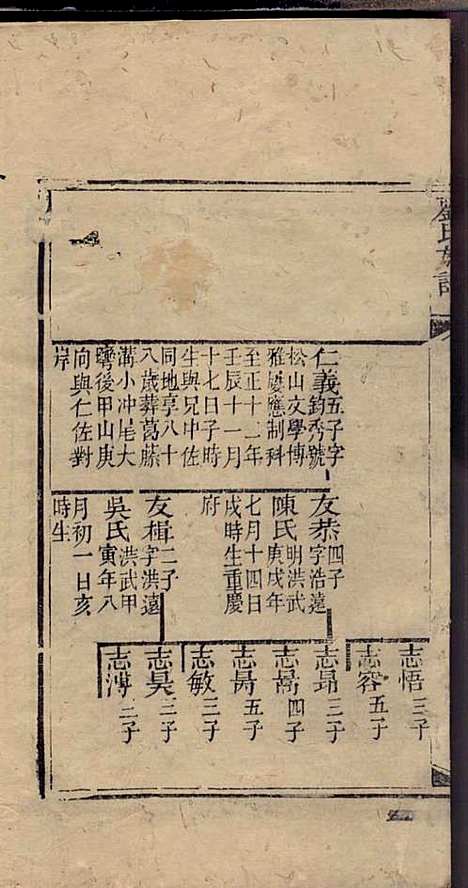 劉氏族譜
仁義五子字
鈞秀號
松山文學博
雅慶應制科
至正十二年
壬辰十一月
十七日子時
生與兄中佐
同地享八十
八歲葬葛藤
溝小冲尾大
彎後甲山庚
向與仁佐對
岸
友恭四子
字浩遠
陳氏明洪武
庚戌年
七月十四日
戌時生重慶
府
友楫二子
字洪遠
吳氏洪武甲
寅年八
月初一日亥
時生
志悟三子
志容五子
志昂三子
志暠四子
志昺五子
志敏三子
志昊三子
志溥三子